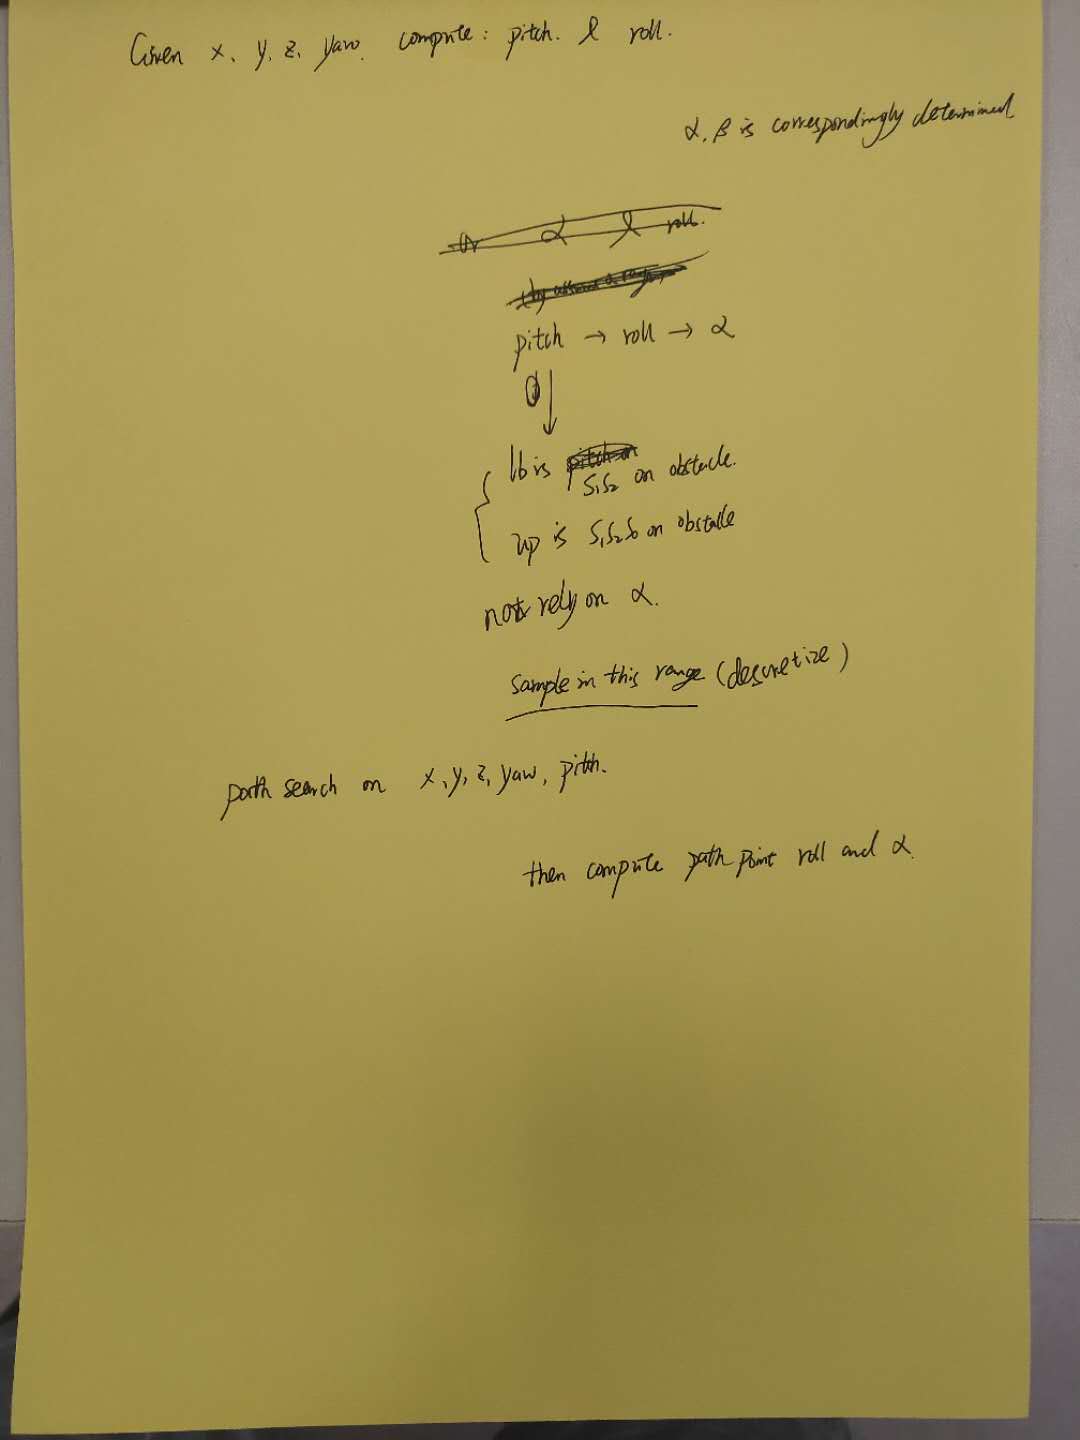 Given x, y, z, yaw. compute: pitch. l roll.
α, β is correspondingly determined
or α l roll.
pitch → roll → α
lb is S₁S₂ on obstacle.
up is S₁S₂S₀ on obstacle
not rely on α.
sample in this range (descretize)
path search on x, y, z, yaw, pitch.
then compute path point roll and α.